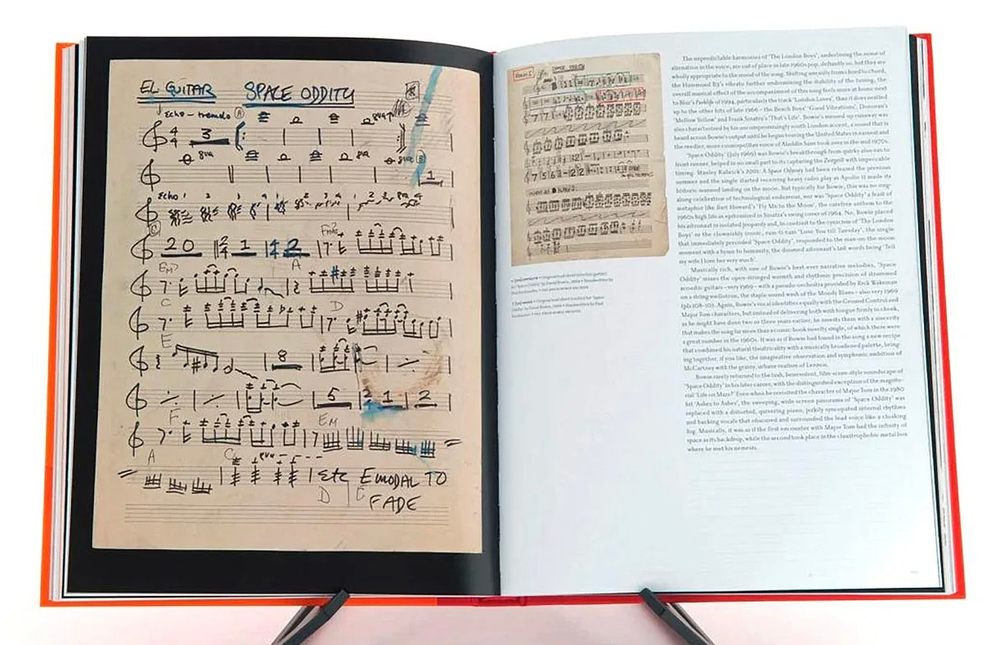 EL GUITAR SPACE ODDITY
Echo - tremolo A 8va
4/4 3
8va 8va B 1
echo
20 2/4 1 4/4 2
A
Em7
C D
E
8
F 5 1 2
Em
A C 8va
etc EMODAL TO
D C FADE
SPACE ODDITY
The unpredictable harmonies of 'The London Boys', underlining the sense of
alienation in the voice, are out of place in late 1960s pop, defiantly so, but they are
wholly appropriate to the mood of the song. Shifting uneasily from chord to chord,
the Hammond B3's vibrato further undermining the stability of the tuning, the
overall musical effect of the accompaniment of this song feels more at home next
to Blur's Parklife of 1994, particularly the track 'London Loves', than it does nestled
up to the other hits of late 1966 – the Beach Boys' 'Good Vibrations', Donovan's
'Mellow Yellow' and Frank Sinatra's 'That's Life'. Bowie's runaway was
also characterized by his uncompromisingly south London accent, a sound that is
heard across Bowie's output until he began touring the United States in earnest and
the sneering, more cosmopolitan voice of Aladdin Sane took over in the mid-1970s.
'Space Oddity' (July 1969) was Bowie's breakthrough from quirky also-ran to
front runner, helped in no small part to its capturing the Zeitgeist with impeccable
timing. Stanley Kubrick's 2001: A Space Odyssey had been released the previous
summer and the single started receiving heavy radio play as Apollo 11 made its
historic manned landing on the moon. But typically for Bowie, this was no sing-
along celebration of technological endeavour, nor was 'Space Oddity' a feast of
metaphor like Bart Howard's 'Fly Me to the Moon', the carefree anthem to the
1960s high life as epitomized in Sinatra's swing cover of 1964. No, Bowie placed
his astronaut in isolated jeopardy and, in contrast to the cynicism of 'The London
Boys' or the clownishly ironic, rum-ti-tum 'Love You till Tuesday', the single
that immediately preceded 'Space Oddity', responded to the man-on-the-moon
moment with a hymn to humanity, the doomed astronaut's last words being 'Tell
my wife I love her very much'.
Musically rich, with one of Bowie's best-ever narrative melodies, 'Space
Oddity' mixes the open-stringed warmth and rhythmic precision of strummed
acoustic guitars – very 1969 – with a pseudo-orchestra provided by Rick Wakeman
on a string mellotron, the staple sound wash of the Moody Blues – also very 1969
Again, Bowie's vocal identities equally with the Ground Control and
Major Tom characters, but instead of delivering both with tongue firmly in cheek,
as he might have done two or three years earlier, he invests them with a sincerity
that makes the song far more than a comic-book novelty single, of which there were
a great number in the 1960s. It was as if Bowie had found in the song a new recipe
that combined his natural theatricality with a musically broadened palette, bring-
ing together, if you like, the imaginative observation and symphonic ambition of
McCartney with the grainy, urbane realism of Lennon.
Bowie rarely returned to the lush, benevolent, film-score-style soundscape of
'Space Oddity' in his later career, with the distinguished exception of the magiste-
rial 'Life on Mars?' Even when he revisited the character of Major Tom in the 1980
hit 'Ashes to Ashes', the sweeping, wide-screen panorama of 'Space Oddity' was
replaced with a distorted, quivering piano, jerkily syncopated internal rhythms
and backing vocals that obscured and surrounded the lead voice like a choking
fog. Musically, it was as if the first encounter with Major Tom had the infinity of
space as its backdrop, while the second took place in the claustrophobic metal box
where he met his nemesis.